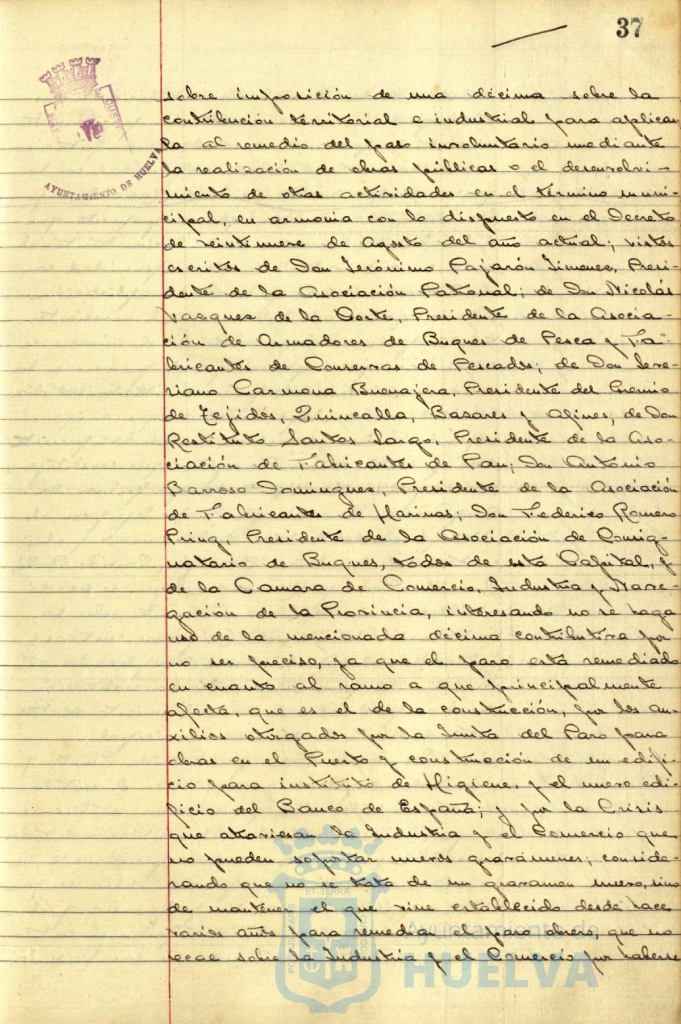 37
AYUNTAMIENTO DE HUELVA
sobre imposición de una décima sobre la
contribución territorial e industrial para aplicar
la al remedio del paro involuntario mediante
la realización de obras públicas o el desenvolvi-
miento de otras actividades en el término muni-
cipal, en armonia con lo dispuesto en el Decreto
de veintinueve de Agosto del año actual; vistos
escritos de Don Jerónimo Pajarón Jimenez, Presi-
dente de la Asociación Patronal; de Don Nicolás
Vazquez de la Corte, Presidente de la Asocia-
ción de Armadores de Buques de Pesca y Fa-
bricantes de Conservas de Pescados; de Don Seve-
riano Carmona Buenajera, Presidente del Gremio
de Tejidos, Quincalla, Bazares y Afines, de Don
Restituto Santos Largo, Presidente de la Aso-
ciación de Fabricantes de Pan; Don António
Barroso Dominguez, Presidente de la Asociación
de Fabricantes de Harinas; Don Federico Romero
Pring, Presidente de la Asociación de Consig-
natario de Buques, todos de esta Capital, y
de la Camara de Comercio, Industria y Nave-
gación de la Provincia, interesando no se haga
uso de la mencionada décima contributiva por
no ser preciso, ya que el paro está remediado
en cuanto al ramo a que principalmente
afecta, que es el de la construcción, por los au-
xilios otorgados por la Junta del Paro para
obras en el Puerto y construcción de un edifi-
cio para instituto de Higiene, y el nuevo edi-
ficio del Banco de España; y por la Crisis
que atraviesan la Industria y el Comercio que
no pueden soportar nuevos gravámenes; conside-
rando que no se trata de un gravamen nuevo, sino
de mantener el que viene establecido desde hace
varios años para remediar el paro obrero, que no
recae sobre la Industria y el Comercio por haberse
Ayuntamiento de
HUELVA